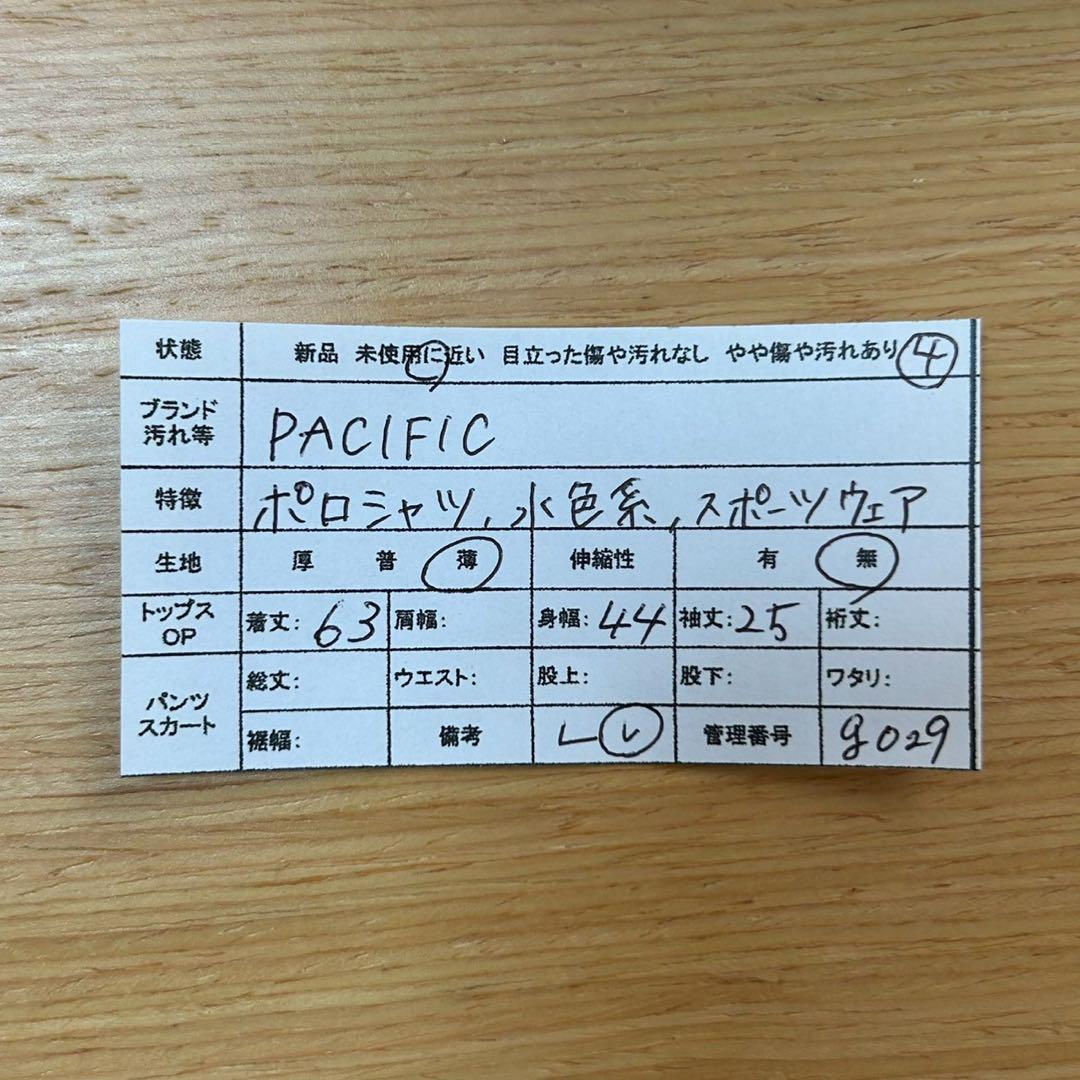 状態 新品 未使用に近い 目立った傷や汚れなし やや傷や汚れあり 4
ブランド
汚れ等 PACIFIC
特徴 ポロシャツ、水色系、スポーツウェア
生地 厚 普 薄 伸縮性 有 無
トップス
OP 着丈: 63 肩幅: 身幅: 44 袖丈: 25 裄丈:
パンツ
スカート 総丈: ウエスト: 股上: 股下: ワタリ:
裾幅: 備考 管理番号 g029